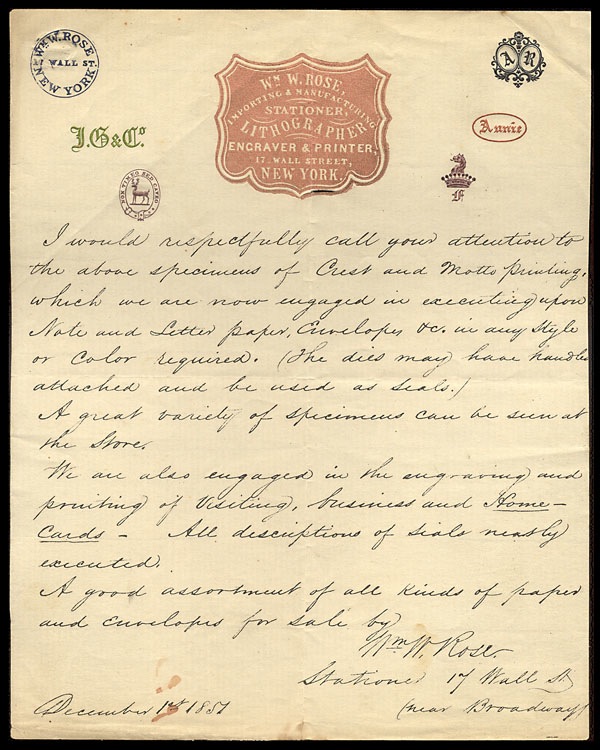 Wm W. ROSE
17 WALL ST.
NEW YORK
Wm W. ROSE,
IMPORTING & MANUFACTURING
STATIONER,
LITHOGRAPHER
ENGRAVER & PRINTER,
17. WALL STREET,
NEW YORK.
A R
J.G&Co.
Annie
NON TIMEO SED CAVEO
F
I would respectfully call your attention to
the above specimens of Crest and Motto printing,
which we are now engaged in executing upon
Note and Letter paper, Envelopes &c. in any style
or Color required. (The dies may have handles
attached and be used as seals.)
A great variety of specimens can be seen at
the Store.
We are also engaged in the engraving and
printing of Visiting, business and Home-
Cards - All descriptions of seals neatly
executed.
A good assortment of all kinds of paper
and envelopes for sale by
Wm. W. Rose.
Stationer 17 Wall St
(near Broadway)
December 1st 1851